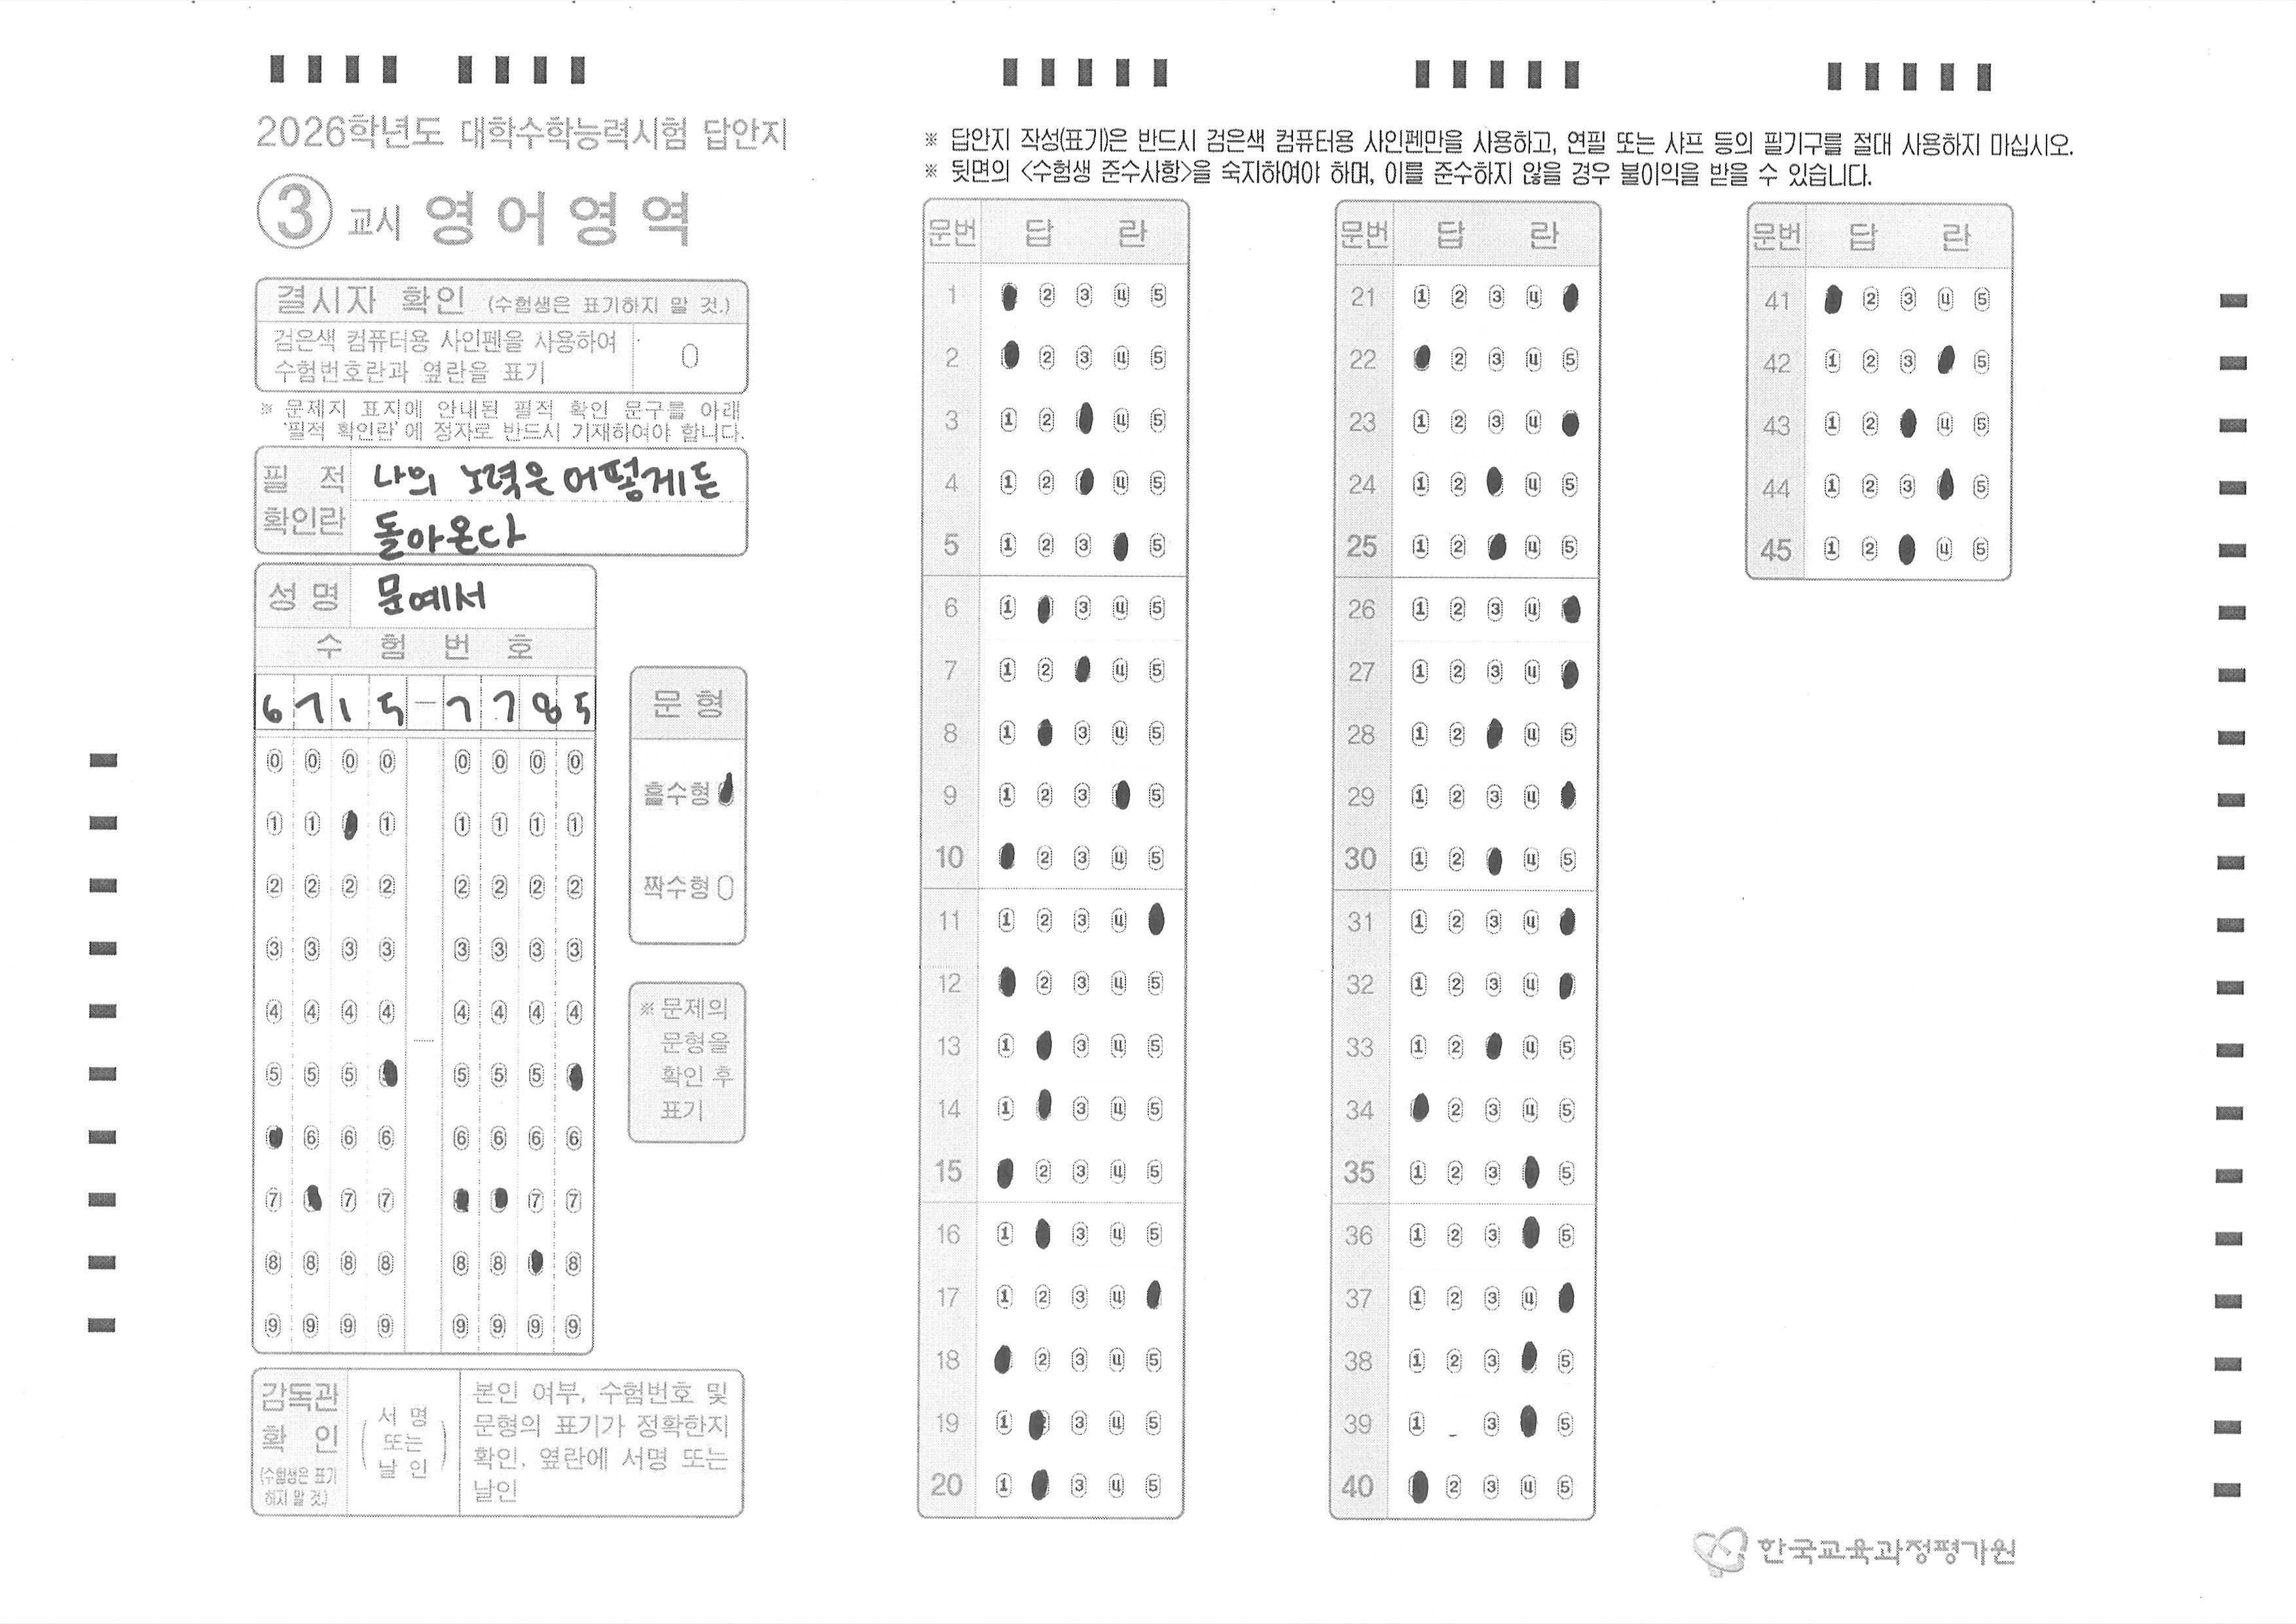 2026학년도 대학수학능력시험 답안지
③ 교시 영어영역
결시자 확인 (수험생은 표기하지 말 것.)
검은색 컴퓨터용 사인펜을 사용하여
수험번호란과 옆란을 표기
0
※ 문제지 표지에 안내된 필적 확인 문구를 아래
'필적 확인란'에 정자로 반드시 기재하여야 합니다.
필 적
확인란
나의 노력은 어떻게든
돌아온다
성 명 문예서
수 험 번 호
6 7 1 5 — 7 7 8 5
0 0 0 0 0 0 0 0
1 1 1 1 1 1 1
2 2 2 2 2 2 2 2
3 3 3 3 3 3 3 3
4 4 4 4 4 4 4 4
5 5 5 5 5 5
6 6 6 6 6 6 6
7 7 7 7 7
8 8 8 8 8 8 8
9 9 9 9 9 9 9 9
문 형
홀수형
짝수형
※ 문제의
문형을
확인 후
표기
감독관
확 인
(수험생은 표기
하지 말 것.)
서 명
또는
날 인
본인 여부, 수험번호 및
문형의 표기가 정확한지
확인, 옆란에 서명 또는
날인
※ 답안지 작성(표기)은 반드시 검은색 컴퓨터용 사인펜만을 사용하고, 연필 또는 샤프 등의 필기구를 절대 사용하지 마십시오.
※ 뒷면의 <수험생 준수사항>을 숙지하여야 하며, 이를 준수하지 않을 경우 불이익을 받을 수 있습니다.
문번 답 란
1 2 3 4 5
2 2 3 4 5
3 1 2 4 5
4 1 2 4 5
5 1 2 3 5
6 1 3 4 5
7 1 2 4 5
8 1 3 4 5
9 1 2 3 5
10 2 3 4 5
11 1 2 3 4
12 2 3 4 5
13 1 3 4 5
14 1 3 4 5
15 2 3 4 5
16 1 3 4 5
17 1 2 3 4
18 2 3 4 5
19 1 3 4 5
20 1 3 4 5
문번 답 란
21 1 2 3 4
22 2 3 4 5
23 1 2 3 4
24 1 2 4 5
25 1 2 4 5
26 1 2 3 4
27 1 2 3 4
28 1 2 4 5
29 1 2 3 4
30 1 2 4 5
31 1 2 3 4
32 1 2 3 4
33 1 2 4 5
34 2 3 4 5
35 1 2 3 5
36 1 2 3 5
37 1 2 3 4
38 1 2 3 5
39 1 3 5
40 2 3 4 5
문번 답 란
41 2 3 4 5
42 1 2 3 5
43 1 2 4 5
44 1 2 3 5
45 1 2 4 5
한국교육과정평가원